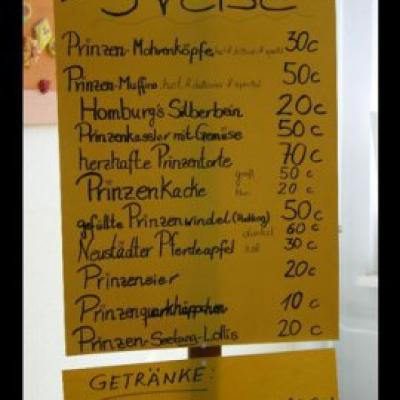 Preise
Prinzen-Mohrenköpfe 30c
Prinzen-Muffins 50c
Homburg's Silberbein 20c
Prinzenkassler mit Gemüse 50c
herzhafte Prinzentorte 70c
Prinzenkacke groß 50c
klein 20c
gefüllte Prinzenwindel (Pudding) 50c
Neustädter Pferdeapfel dunkel 60c
hell 30c
Prinzeneier 20c
Prinzenquarkhäppchen 10c
Prinzen-Seetang-Lollis 20c
GETRÄNKE: